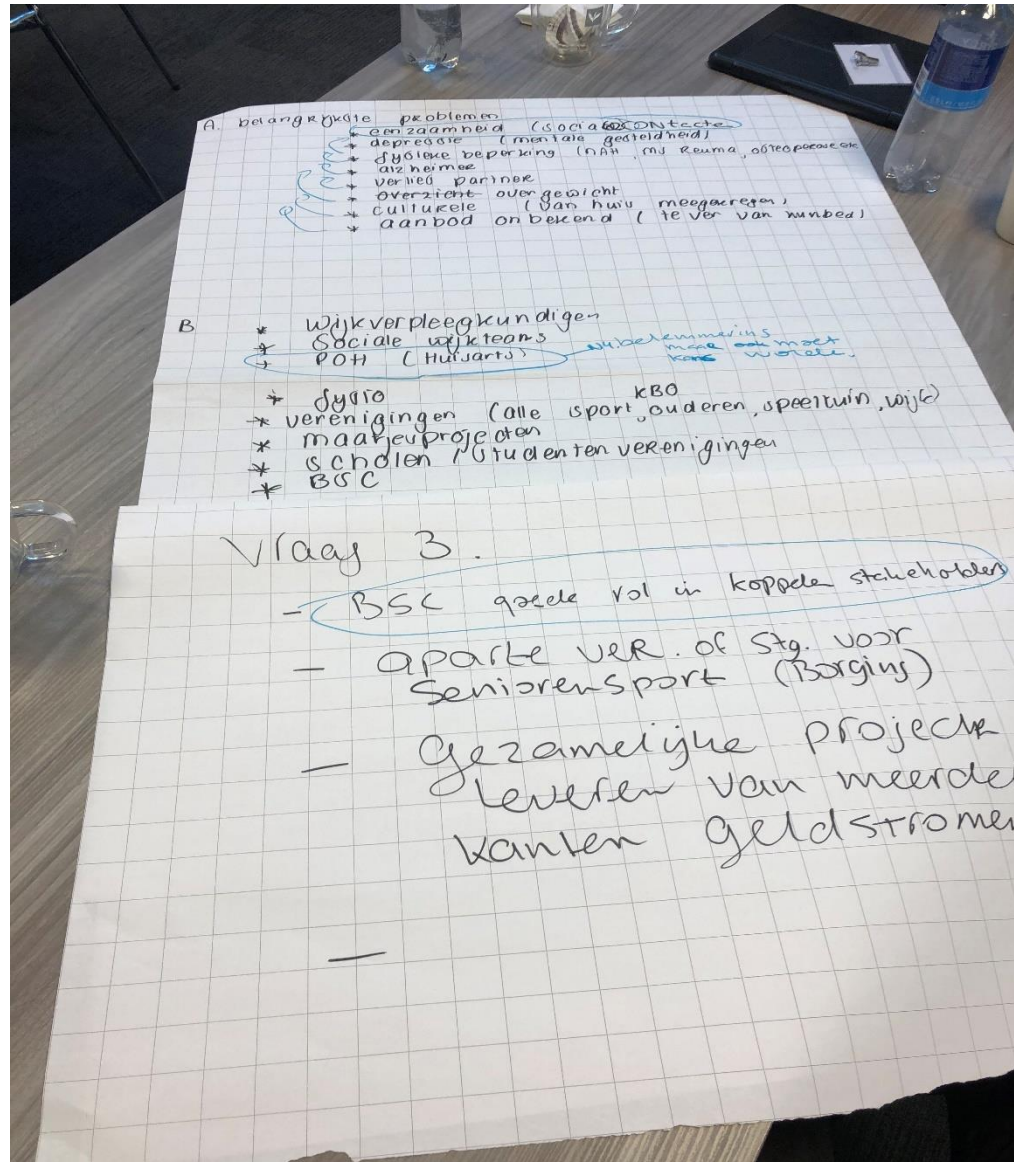 A. belangrijkste problemen
* eenzaamheid (sociale contecte)
* depressie (mentale gesteldheid)
* fysieke beperking (NAH, MS Reuma, osteoperose etc
* alzheimer
* verlies partner
* overzicht overgewicht
* culturele (van huis meegekregen)
* aanbod onbekend (te ver van hun bed)
B
* wijkverpleegkundigen
* Sociale wijkteams
* POH (Huisarts) nu belemmering maar moet worden.
* fysio
KBO
* verenigingen (alle sport, ouderen, speeltuin, wijk)
* maatjesprojecten
* scholen / studentenverenigingen
* BSC
Vraag 3.
- BSC goede rol in koppelen stakeholders
- aparte ver. of Stg. voor
Seniorensport (Borging)
- gezamelijke projecte
leveren van meerde
kanten geldstromen
-